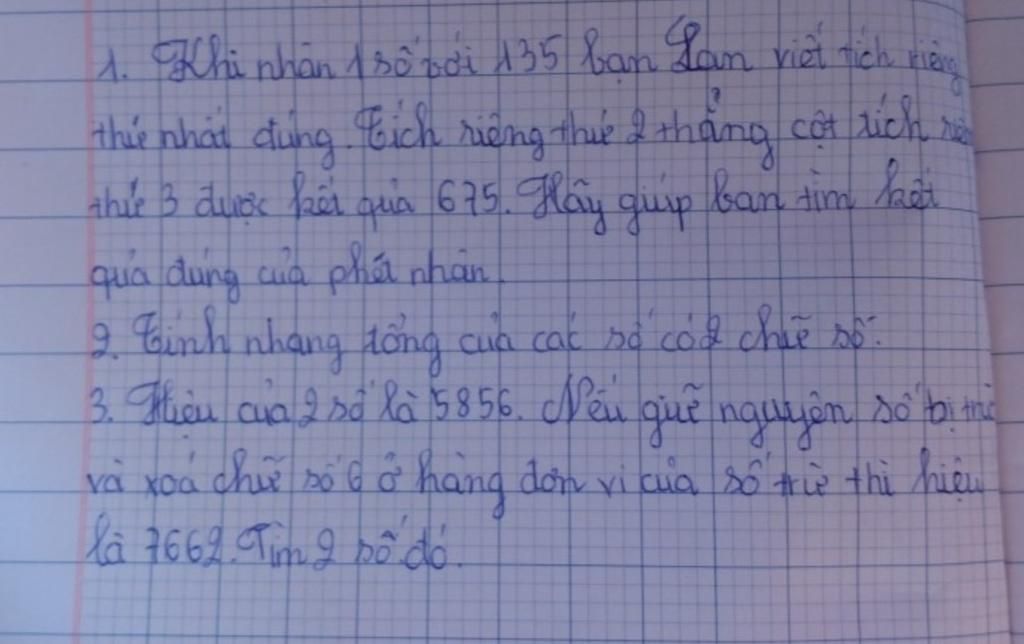 1. Khi nhân 1 số với 135 bạn Lan viết tích riêng
thứ nhất đúng. Tích riêng thứ 2 thẳng cột tích riêng
thứ 3 được kết quả 675. Hãy giúp bạn tìm kết
quả đúng của phép nhân.
2. Tính nhanh tổng của các số có 2 chữ số.
3. Hiệu của 2 số là 5856. Nếu giữ nguyên số bị trừ
và xoá chữ số 6 ở hàng đơn vị của số trừ thì hiệu
là 7662. Tìm 2 số đó.